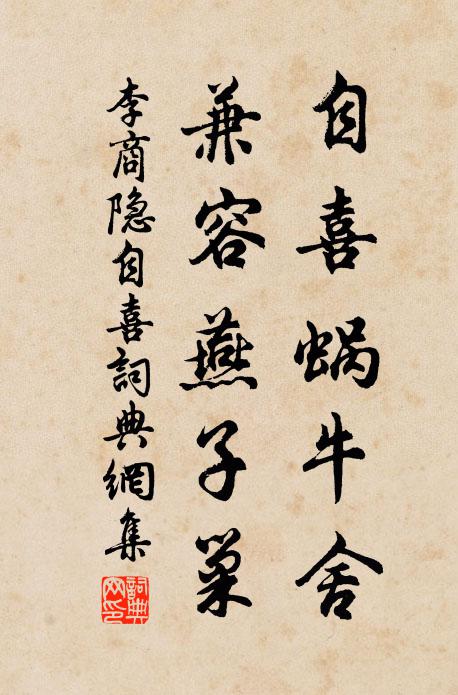 自喜蜗牛舍
兼容燕子巢
李商隐自喜詞典網集
詞典网印